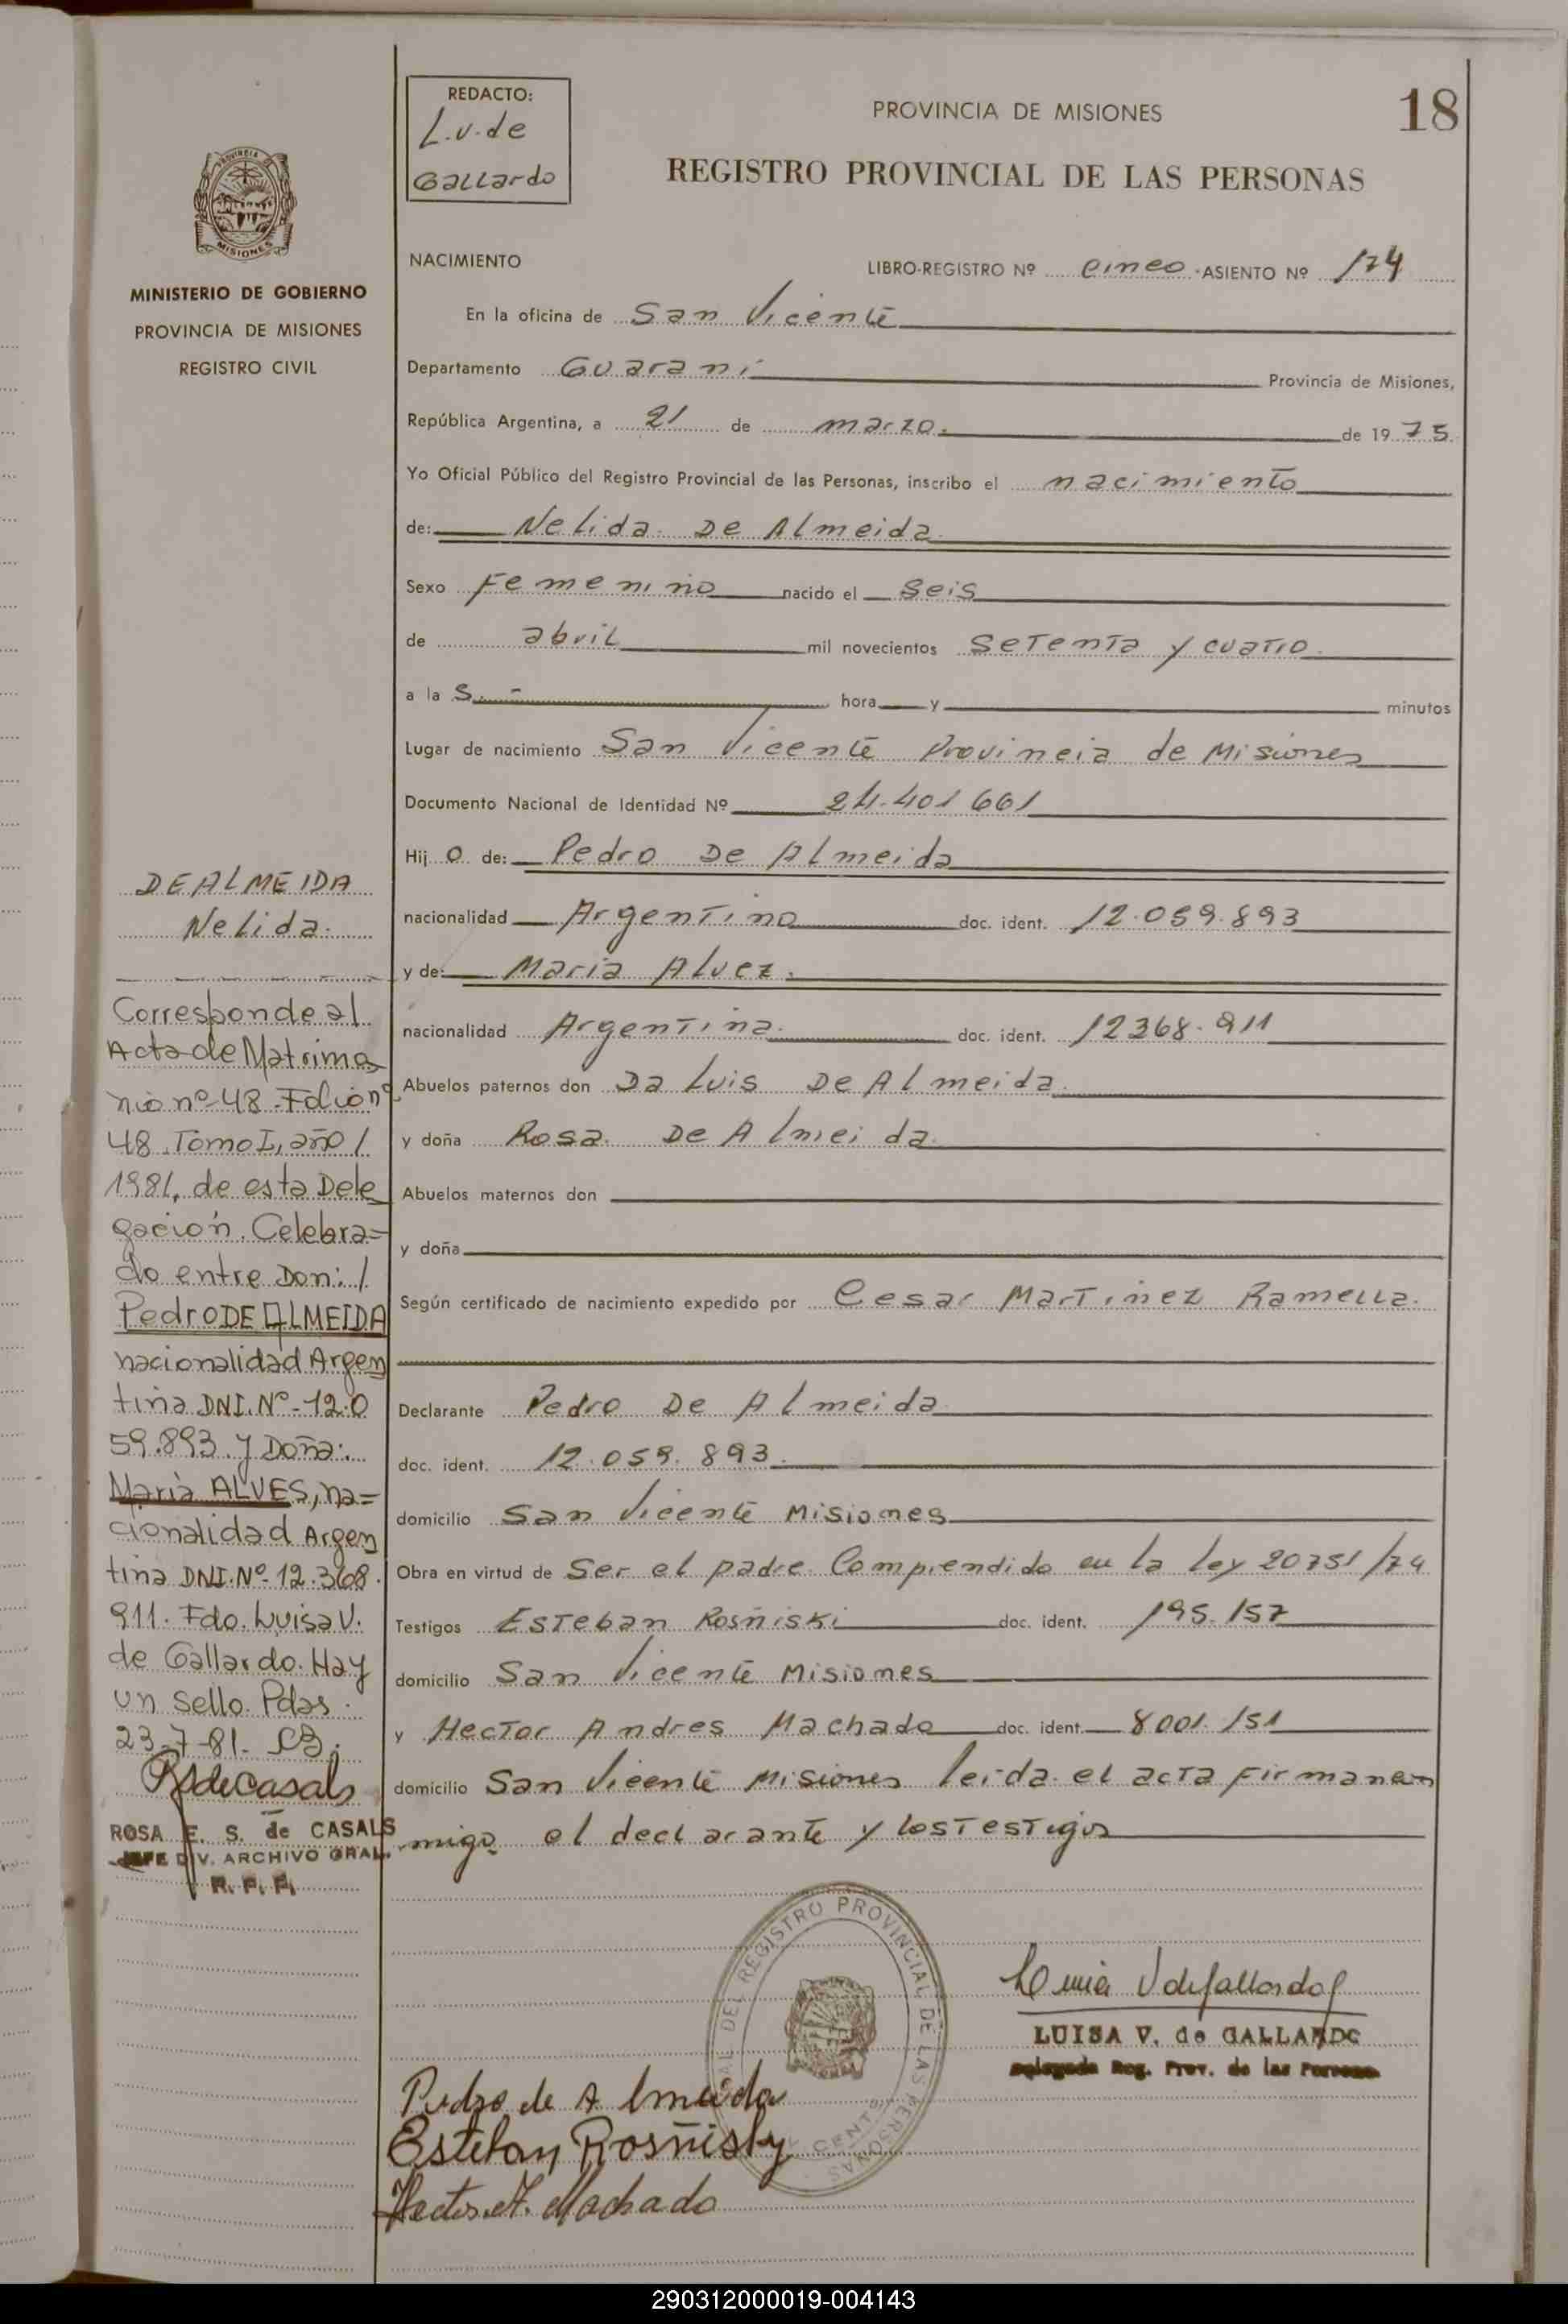 REDACTO:
L.V. de
Gallardo
PROVINCIA DE MISIONES
18
REGISTRO PROVINCIAL DE LAS PERSONAS
PROVINCIA
MISIONES
MINISTERIO DE GOBIERNO
PROVINCIA DE MISIONES
REGISTRO CIVIL
NACIMIENTO
LIBRO-REGISTRO Nº cinco ASIENTO Nº 174
En la oficina de San Vicente
Departamento Guarani Provincia de Misiones,
República Argentina, a 21 de marzo. de 1975
Yo Oficial Público del Registro Provincial de las Personas, inscribo el nacimiento
de: Nelida De Almeida
Sexo Femenino nacido el seis
de abril mil novecientos setenta y cuatro
a las. - hora y minutos
Lugar de nacimiento San Vicente Provincia de Misiones
Documento Nacional de Identidad Nº 24.401661
Hijo de: Pedro De Almeida
nacionalidad Argentino doc. ident. 12.059.893
y de: Maria Alvez.
nacionalidad Argentina. doc. ident. 12368.911
Abuelos paternos don Da Luis De Almeida
y doña Rosa De Almeida
Abuelos maternos don
y doña
Según certificado de nacimiento expedido por Cesar Martinez Ramella.
Declarante Pedro De Almeida
doc. ident. 12.059.893.
domicilio San Vicente Misiones
Obra en virtud de Ser el padre Comprendido en la ley 20751/74
Testigos Esteban Rosñiski doc. ident. 195.157
domicilio San Vicente Misiones
y Hector Andres Machado doc. ident. 8001.151
domicilio San Vicente Misiones leida el acta firman con
migo el declarante y los testigos
DE ALMEIDA
Nelida.
Corresponde al
Acta de Matrimo
nio nº 48 Folio nº
48 Tomo I, año /
1981, de esta Dele
gación. Celebra=
do entre Don: /
Pedro DE ALMEIDA
nacionalidad Argen
tina DNI. Nº-12.0
59.893 y Doña:
Maria ALVES, na=
cionalidad Argen
tina DNI. Nº-12.368.
911. Fdo. Luisa V.
de Gallardo. Hay
un sello. Pdas.
23-7-81.
RSdeCasals
ROSA E. S. de CASALS
JEFE DIV. ARCHIVO GRAL.
R. P. P.
DEL REGISTRO PROVINCIAL DE LAS PERSONAS
Luisa V de Gallardo
LUISA V. de GALLARDO
Delegada Reg. Prov. de las Personas
Pedro de Almeida
Esteban Rosñisky
Hector A. Machado
290312000019-004143